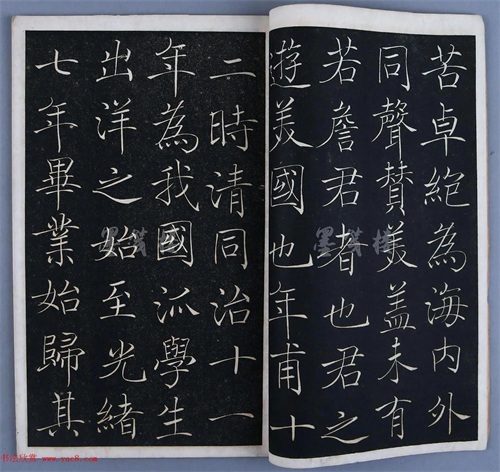 苦卓絕為海内外
同聲贊美蓋未有
若詹君者也君之
遊美國也年甫十
二時清同治十一
年為我國派學生
出洋之始至光緒
七年畢業始歸其
墨萃樓
书法欣赏
www.yac8.com